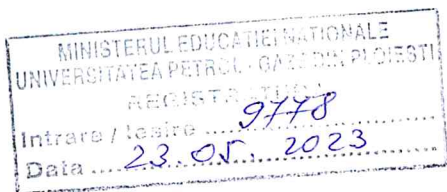 MINISTERUL EDUCAȚIEI NAȚIONALE
UNIVERSITATEA PETROL - GAZE DIN PLOIEȘTI
REGISTRATURA
Intrare / Iesire ..... 9778
Data .... 23.05. 2023